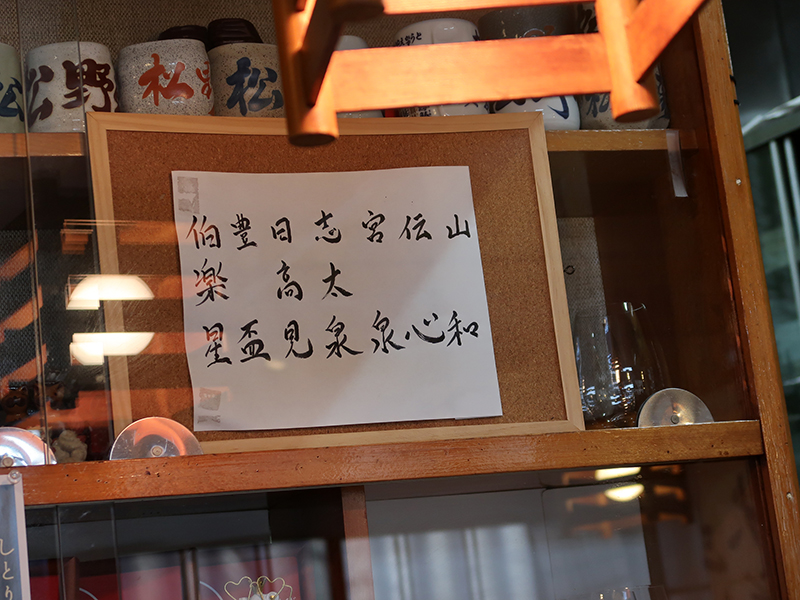 松野
松
松
山和
伝心
宮泉
志太泉
日高見
豊盃
伯楽星
しとり